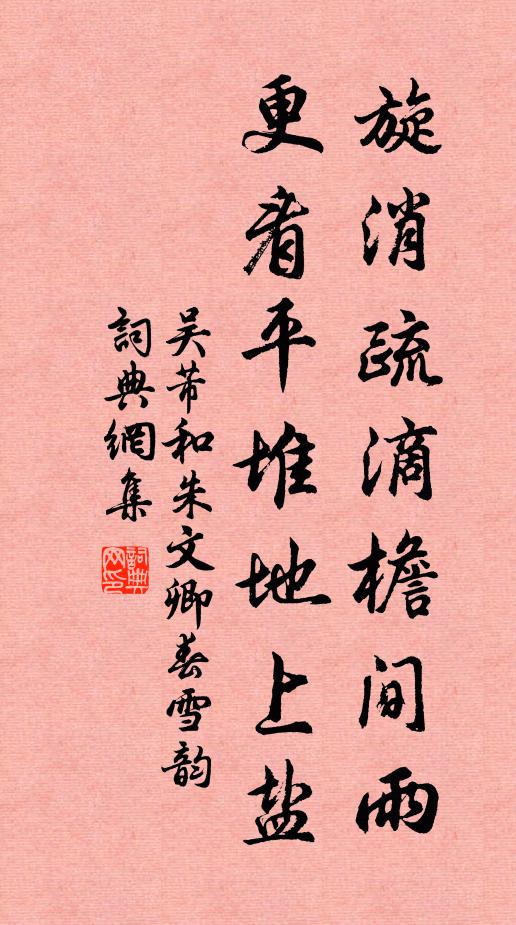 旋消疏滴檐间雨
更看平堆地上盐
吴芾和朱文卿春雪韵
詞典網集
詞典网印